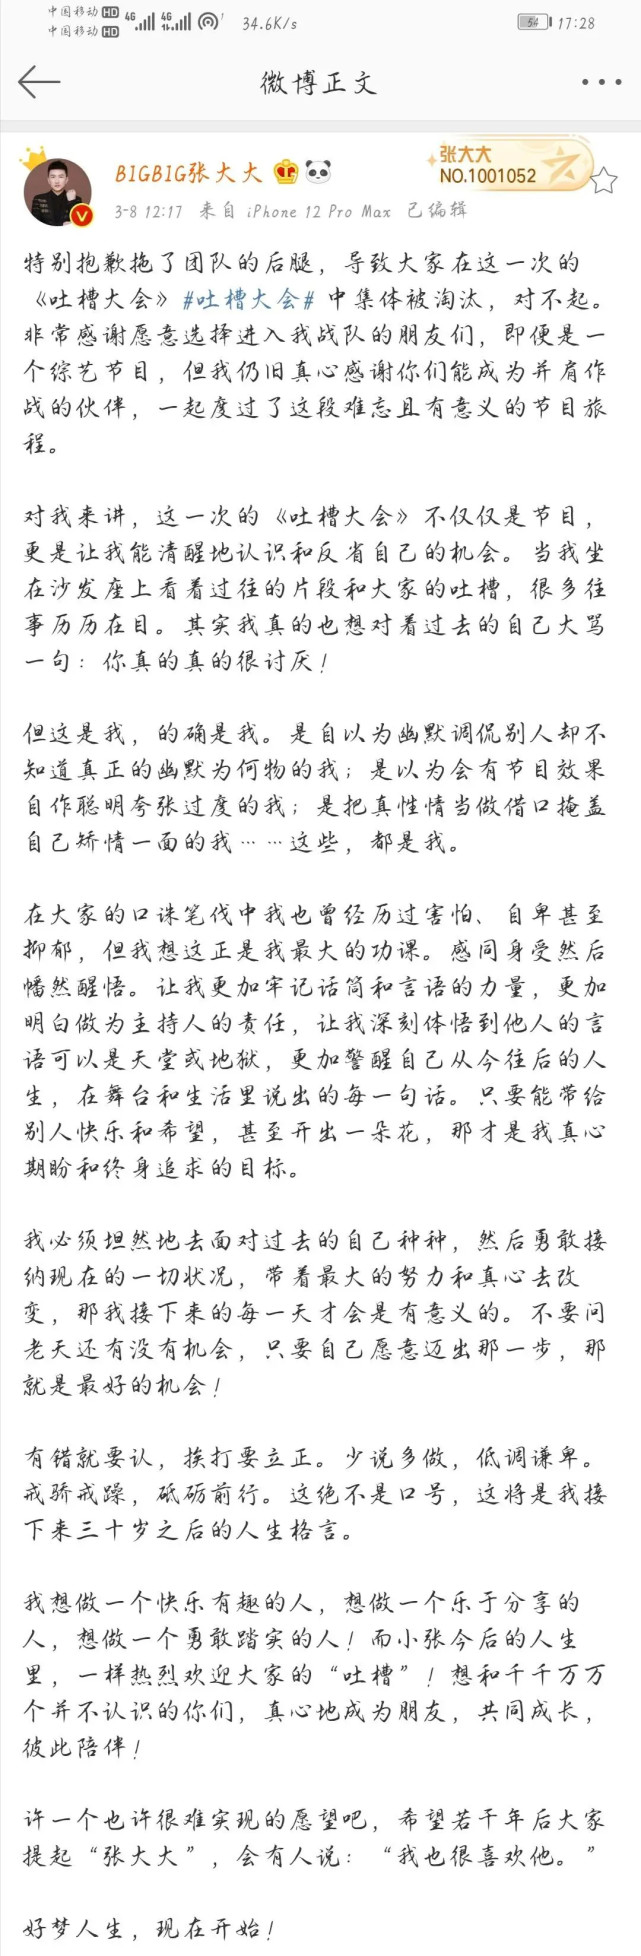 中国移动 HD 4G 4G 34.6K/s 54 17:28
中国移动 HD
微博正文
BIGBIG张大大
张大大
NO.1001052
3-8 12:17 来自 iPhone 12 Pro Max 已编辑
特别抱歉拖了团队的后腿，导致大家在这一次的
《吐槽大会》#吐槽大会# 中集体被淘汰，对不起。
非常感谢愿意选择进入我战队的朋友们，即便是一
个综艺节目，但我仍旧真心感谢你们能成为并肩作
战的伙伴，一起度过了这段难忘且有意义的节目旅
程。
对我来讲，这一次的《吐槽大会》不仅仅是节目，
更是让我能清醒地认识和反省自己的机会。当我坐
在沙发座上看着过往的片段和大家的吐槽，很多往
事历历在目。其实我真的也想对着过去的自己大骂
一句：你真的真的很讨厌！
但这是我，的确是我。是自以为幽默调侃别人却不
知道真正的幽默为何物的我；是以为会有节目效果
自作聪明夸张过度的我；是把真性情当做借口掩盖
自己矫情一面的我……这些，都是我。
在大家的口诛笔伐中我也曾经历过害怕、自卑甚至
抑郁，但我想这正是我最大的功课。感同身受然后
幡然醒悟。让我更加牢记话筒和言语的力量，更加
明白做为主持人的责任，让我深刻体悟到他人的言
语可以是天堂或地狱，更加警醒自己从今往后的人
生，在舞台和生活里说出的每一句话。只要能带给
别人快乐和希望，甚至开出一朵花，那才是我真心
期盼和终身追求的目标。
我必须坦然地去面对过去的自己种种，然后勇敢接
纳现在的一切状况，带着最大的努力和真心去改
变，那我接下来的每一天才会是有意义的。不要问
老天还有没有机会，只要自己愿意迈出那一步，那
就是最好的机会！
有错就要认，挨打要立正。少说多做，低调谦卑。
戒骄戒躁，砥砺前行。这绝不是口号，这将是我接
下来三十岁之后的人生格言。
我想做一个快乐有趣的人，想做一个乐于分享的
人，想做一个勇敢踏实的人！而小张今后的人生
里，一样热烈欢迎大家的“吐槽”！想和千千万万
个并不认识的你们，真心地成为朋友，共同成长，
彼此陪伴！
许一个也许很难实现的愿望吧，希望若干年后大家
提起“张大大”，会有人说：“我也很喜欢他。”
好梦人生，现在开始！